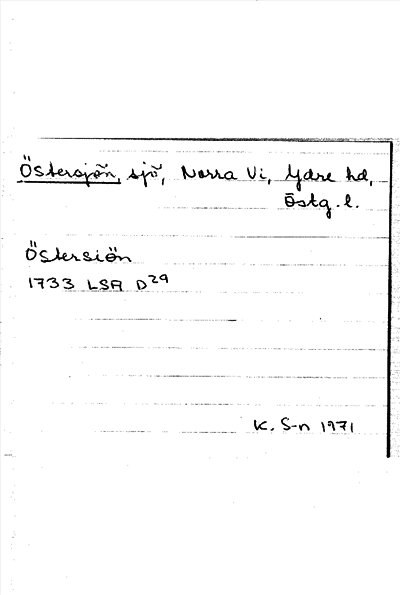 Östersjön, sjö, Norra Vi, Ydre hd,
Östg. l.
Östersiön
1733 LSA D29
K. S-n 1971